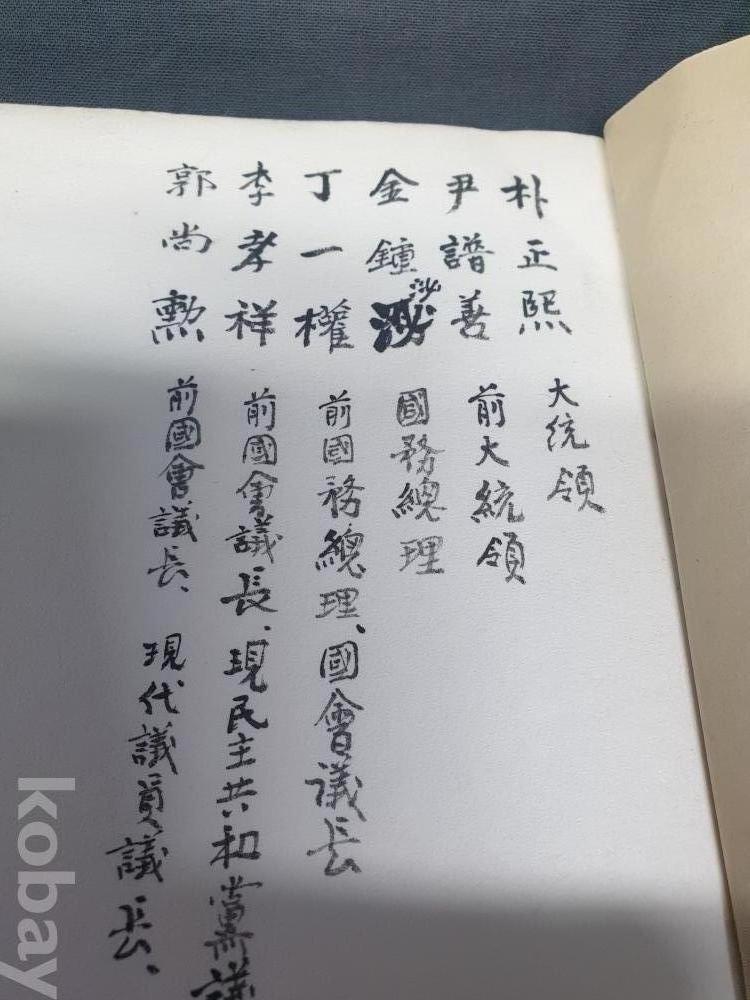 朴正熙 大統領
尹譜善 前大統領
金鍾泌 國務總理
丁一權 前國務總理、國會議長
李孝祥 前國會議長、現民主共和黨議
郭尚勲 前國會議長、現代議員議長、
kobay